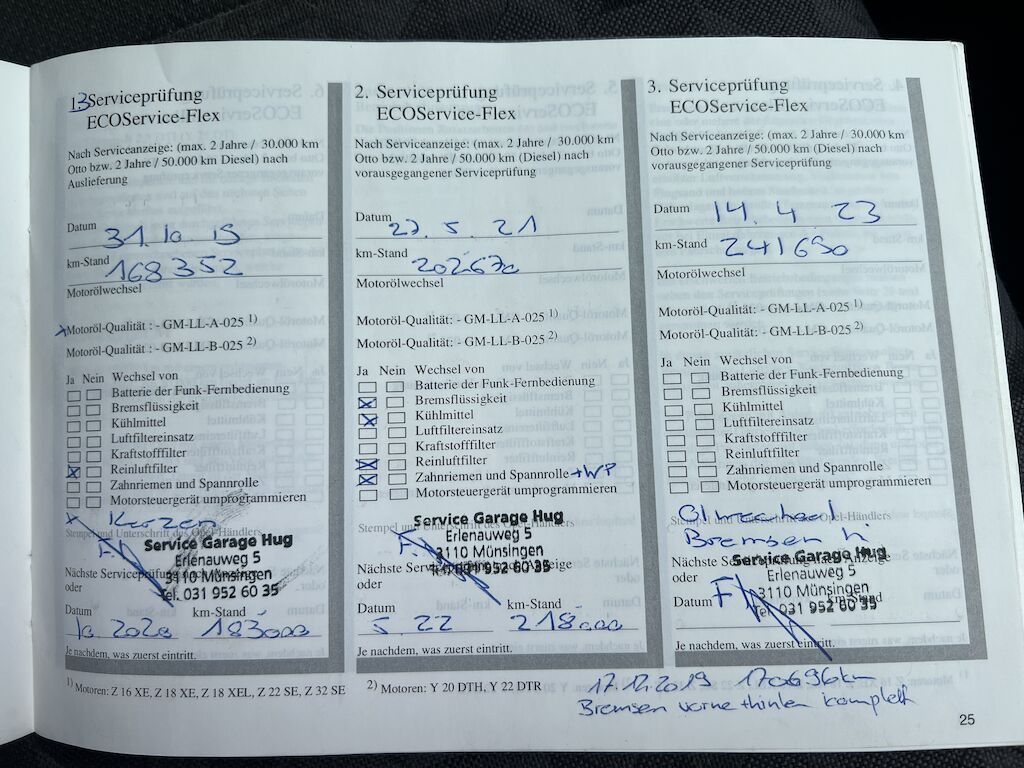 13 Serviceprüfung
ECOService-Flex
Nach Serviceanzeige: (max. 2 Jahre / 30.000 km
Otto bzw. 2 Jahre / 50.000 km Diesel) nach
Auslieferung
Datum 31.10.19
km-Stand 168352
Motorölwechsel
x Motoröl-Qualität : - GM-LL-A-025 1)
Motoröl-Qualität : - GM-LL-B-025 2)
Ja Nein Wechsel von
Batterie der Funk-Fernbedienung
Bremsflüssigkeit
Kühlmittel
Luftfiltereinsatz
Kraftstofffilter
x Reinluftfilter
Zahnriemen und Spannrolle
Motorsteuergerät umprogrammieren
x Kerzen
Stempel und Unterschrift des Opel-Händlers
Service Garage Hug
Erlenauweg 5
3110 Münsingen
Tel. 031 952 60 35
Nächste Serviceprüfung
oder
Datum km-Stand
10.2020 183000
Je nachdem, was zuerst eintritt.
2. Serviceprüfung
ECOService-Flex
Nach Serviceanzeige: (max. 2 Jahre / 30.000 km
Otto bzw. 2 Jahre / 50.000 km (Diesel) nach
vorausgegangener Serviceprüfung
Datum 27.5.21
km-Stand 202670
Motorölwechsel
Motoröl-Qualität: - GM-LL-A-025 1)
Motoröl-Qualität: - GM-LL-B-025 2)
Ja Nein Wechsel von
Batterie der Funk-Fernbedienung
x Bremsflüssigkeit
x Kühlmittel
Luftfiltereinsatz
Kraftstofffilter
x Reinluftfilter
x Zahnriemen und Spannrolle +WP
Motorsteuergerät umprogrammieren
Stempel und Unterschrift des Opel-Händlers
Service Garage Hug
Erlenauweg 5
3110 Münsingen
Tel. 031 952 60 35
Nächste Serviceprüfung nach Anzeige
oder
Datum km-Stand
5.22 218000
Je nachdem, was zuerst eintritt.
3. Serviceprüfung
ECOService-Flex
Nach Serviceanzeige: (max. 2 Jahre / 30.000 km
Otto bzw. 2 Jahre / 50.000 km (Diesel) nach
vorausgegangener Serviceprüfung
Datum 14.4 23
km-Stand 241690
Motorölwechsel
Motoröl-Qualität: - GM-LL-A-025 1)
Motoröl-Qualität: - GM-LL-B-025 2)
Ja Nein Wechsel von
Batterie der Funk-Fernbedienung
Bremsflüssigkeit
Kühlmittel
Luftfiltereinsatz
Kraftstofffilter
Reinluftfilter
Zahnriemen und Spannrolle
Motorsteuergerät umprogrammieren
Ölwechsel
Stempel und Unterschrift des Opel-Händlers
Bremsen h
Service Garage Hug
Erlenauweg 5
3110 Münsingen
Tel. 031 952 60 35
Nächste Serviceprüfung nach Anzeige
oder
Datum km-Stand
Je nachdem, was zuerst eintritt.
1) Motoren: Z 16 XE, Z 18 XE, Z 18 XEL, Z 22 SE, Z 32 SE
2) Motoren: Y 20 DTH, Y 22 DTR
17.12.2019 170696km
Bremsen vorne + hinten komplett
25